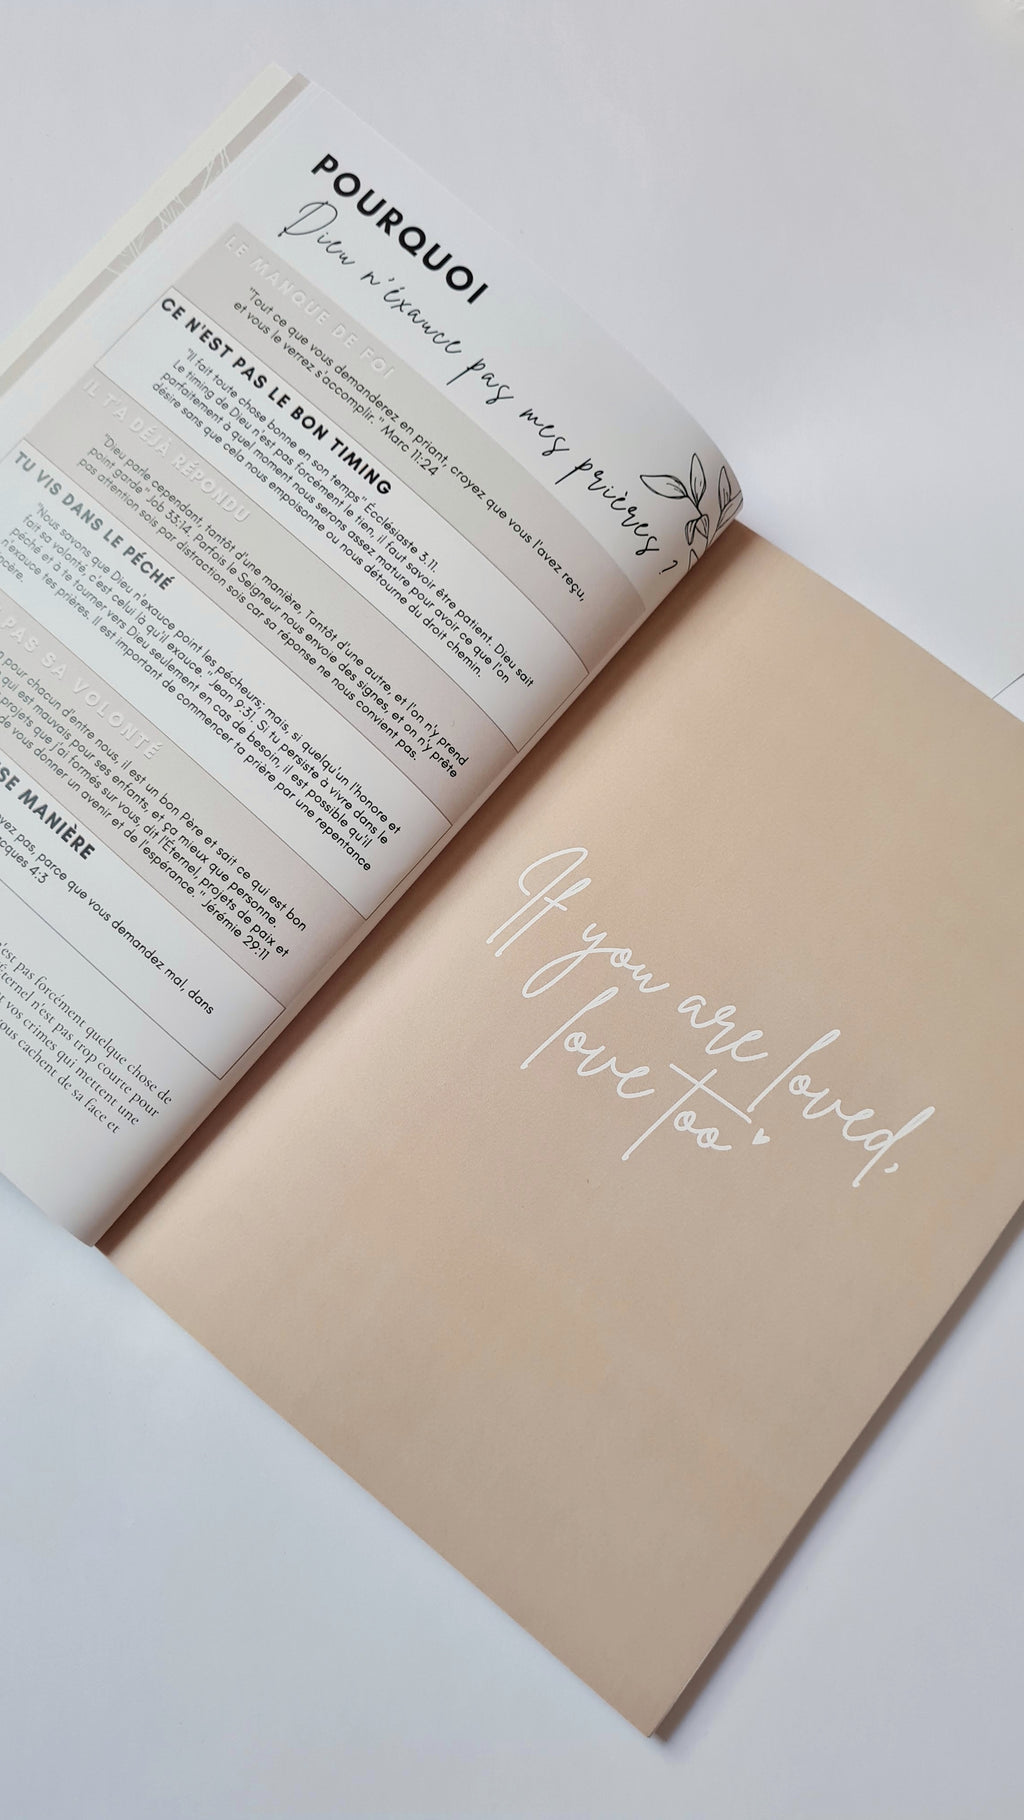 POURQUOI
Dieu n'éxauce pas mes prières ?
LE MANQUE DE FOI
"Tout ce que vous demanderez en priant, croyez que vous l'avez reçu,
et vous le verrez s'accomplir." Marc 11:24
CE N'EST PAS LE BON TIMING
"Il fait toute chose bonne en son temps" Écclésiaste 3.11.
Le timing de Dieu n'est pas forcément le tien, il faut savoir être patient. Dieu sait
parfaitement à quel moment nous serons assez mature pour avoir ce que l'on
désire sans que cela nous empoisonne ou nous détourne du droit chemin.
IL T'A DÉJÀ RÉPONDU
"Dieu parle cependant, tantôt d'une manière, Tantôt d'une autre, et l'on n'y prend
point garde" Job 33:14. Parfois le Seigneur nous envoie des signes, et on n'y prête
pas attention sois par distraction sois car sa réponse ne nous convient pas.
TU VIS DANS LE PÉCHÉ
"Nous savons que Dieu n'exauce point les pécheurs; mais, si quelqu'un l'honore et
fait sa volonté, c'est celui là qu'il exauce." Jean 9:31. Si tu persiste à vivre dans le
péché et à te tourner vers Dieu seulement en cas de besoin, il est possible qu'il
n'exauce tes prières. Il est important de commencer ta prière par une repentance
PAS SA VOLONTÉ
pour chacun d'entre nous, il est un bon Père et sait ce qui est bon
qui est mauvais pour ses enfants, et ça mieux que personne.
projets que j'ai formés sur vous, dit l'Éternel, projets de paix et
de vous donner un avenir et de l'espérance." Jérémie 29:11
MANIÈRE
pas, parce que vous demandez mal, dans
4:3
n'est pas forcément quelque chose de
n'est pas trop courte pour
vos crimes qui mettent une
cachent de sa face et
If you are loved,
love too